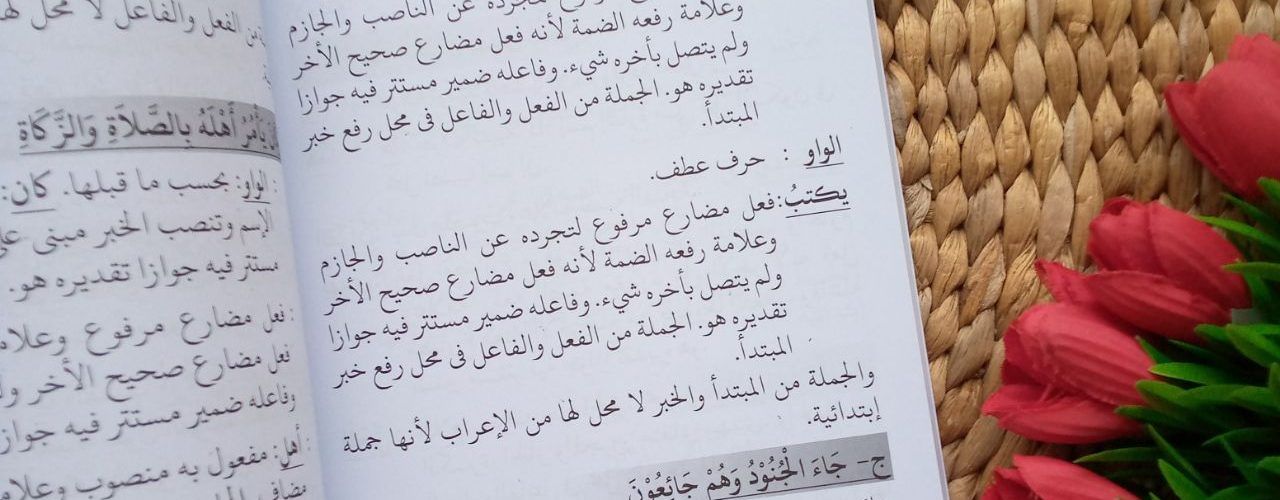 وعلامة رفعه الضمة لأنه فعل مضارع صحيح الأخر
ولم يتصل بأخره شيء. وفاعله ضمير مستتر فيه جوازا
تقديره هو. الجملة من الفعل والفاعل فى محل رفع خبر
المبتدأ.
الواو : حرف عطف.
يكتبُ: فعل مضارع مرفوع لتجرده عن الناصب والجازم
وعلامة رفعه الضمة لأنه فعل مضارع صحيح الأخر
ولم يتصل بأخره شيء. وفاعله ضمير مستتر فيه جوازا
تقديره هو. الجملة من الفعل والفاعل فى محل رفع خبر
المبتدأ.
والجملة من المبتدأ والخبر لا محل لها من الإعراب لأنها جملة
إبتدائية.
ج- جَاءَ الْجُنُوْدُ وَهُمْ جَائِعُوْنَ
الفعل والفاعل لا محل
يَأْمُرُ أَهْلَهُ بِالصَّلاَةِ وَالزَّكَاةِ
: الواو: بحسب ما قبلها. كان:
الإسم وتنصب الخبر مبنى
مستتر فيه جوازا تقديره هو.
: فعل مضارع مرفوع
فعل مضارع صحيح الأخر
وفاعله ضمير مستتر فيه
: أهل: مفعول به منصوب